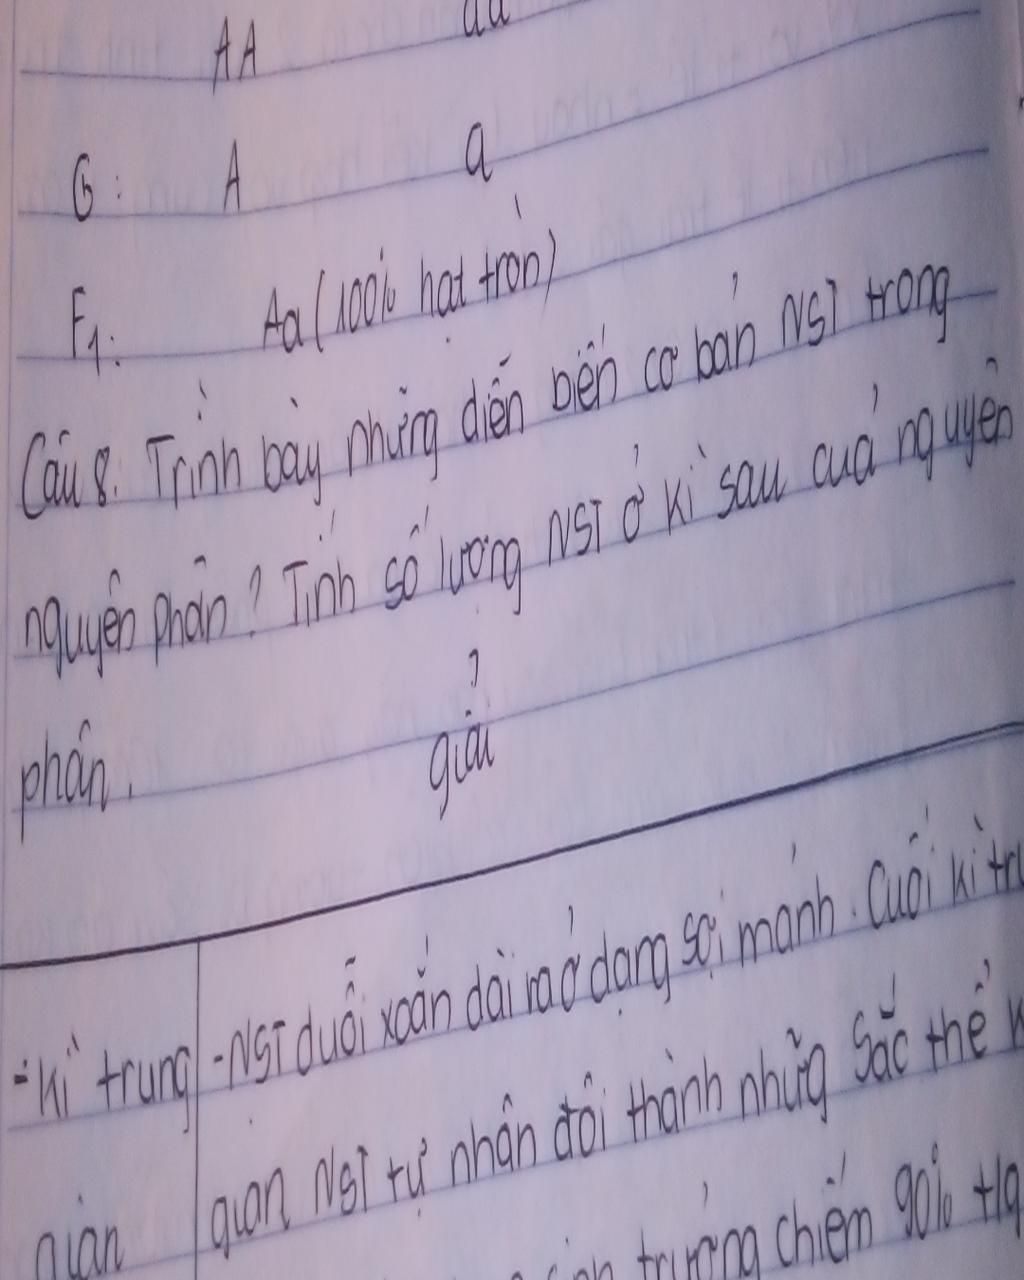 AA aa
G: A a
F1: Aa (100% hạt tròn)
Câu 8: Trình bày những diễn biến cơ bản NST trong
nguyên phân? Tính số lượng NST ở kì sau của nguyên
phân.
giải
- Kì trung - NST duỗi xoắn dài ra ở dạng sợi mảnh. Cuối kì
gian gian NST tự nhân đôi thành những sắc thể
trưởng chiếm 90%